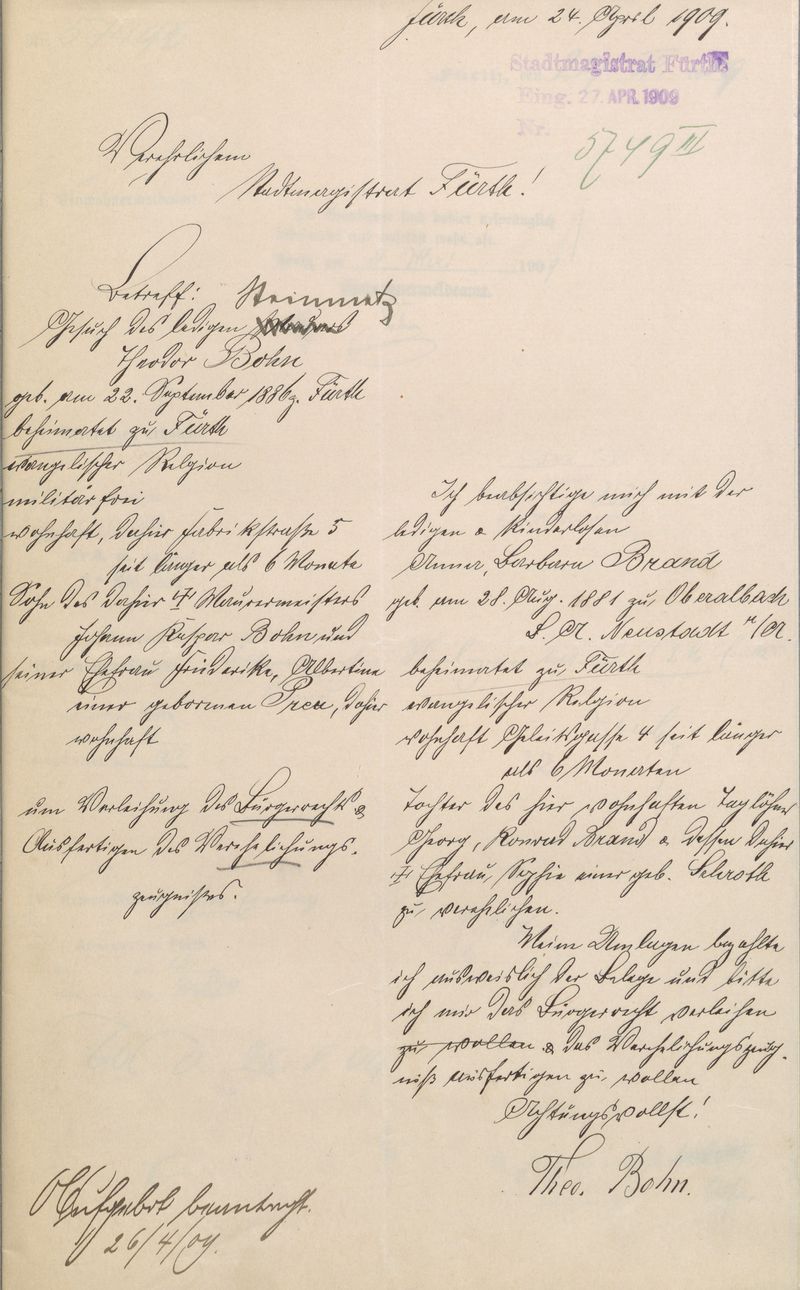 Fürth, am 24. April 1909.
Stadtmagistrat Fürth
Eing. 27. APR. 1909
Nr.
5749 III
Verehrlichem
Stadtmagistrat Fürth!
Betreff: Steinmetz
Gesuch des ledigen
Theodor Bohn
geb. am 22. September 1886 z. Fürth
beheimatet zu Fürth
evangelischer Religion
militärfrei
wohnhaft, dahier Fabrikstraße 5
seit länger als 6 Monate
Sohn des dahier † Maurermeisters
Johann Kaspar Bohn und
seiner Ehefrau Friederike, Albertine
einer gebornen , dahier
wohnhaft
um Verleihung des Bürgerrechts &
Ausfertigen des Verehelichungs-
zeugnisses.
Ich beabsichtige mich mit der
ledigen & kinderlosen
Anna, Barbara Brand
geb. am 28. Aug. 1881 zu Oberalbach
B. A. Neustadt a/A.
beheimatet zu Fürth
evangelischer Religion
wohnhaft Geleitsgasse 4 seit länger
als 6 Monaten
Tochter des hier wohnhaften Taglöhners
Georg, Konrad Brand & dessen dahier
† Ehefrau, Sophie einer geb. Schroth
zu verehelichen.
Meine Umlagen bezahlte
ich ausweislich der Belege und bitte
ich mir das Bürgerrecht verleihen
zu wollen & das Verehelichungszeug-
niß ausfertigen zu wollen
Achtungsvollst!
Theo. Bohn.
Aufgebot beantragt.
26/4/09.